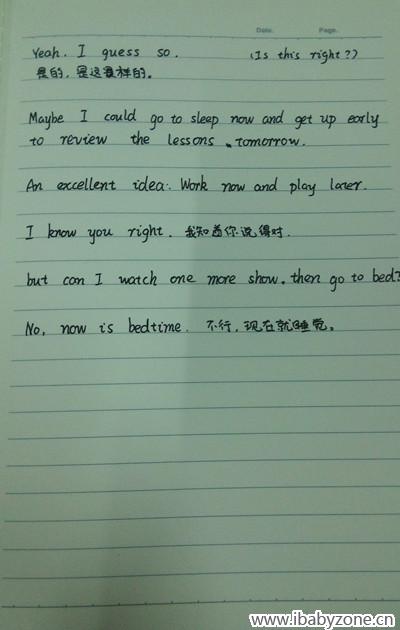 Date. Page.
Yeah. I guess so. (Is this right?)
是的,是这样的。
Maybe I could go to sleep now and get up early
to review the lessons tomorrow.
An excellent idea. Work now and play later.
I know you right. 我知道你说得对.
but can I watch one more show. then go to bed?
No, now is bedtime. 不行,现在就睡觉。
www.ibabyzone.cn